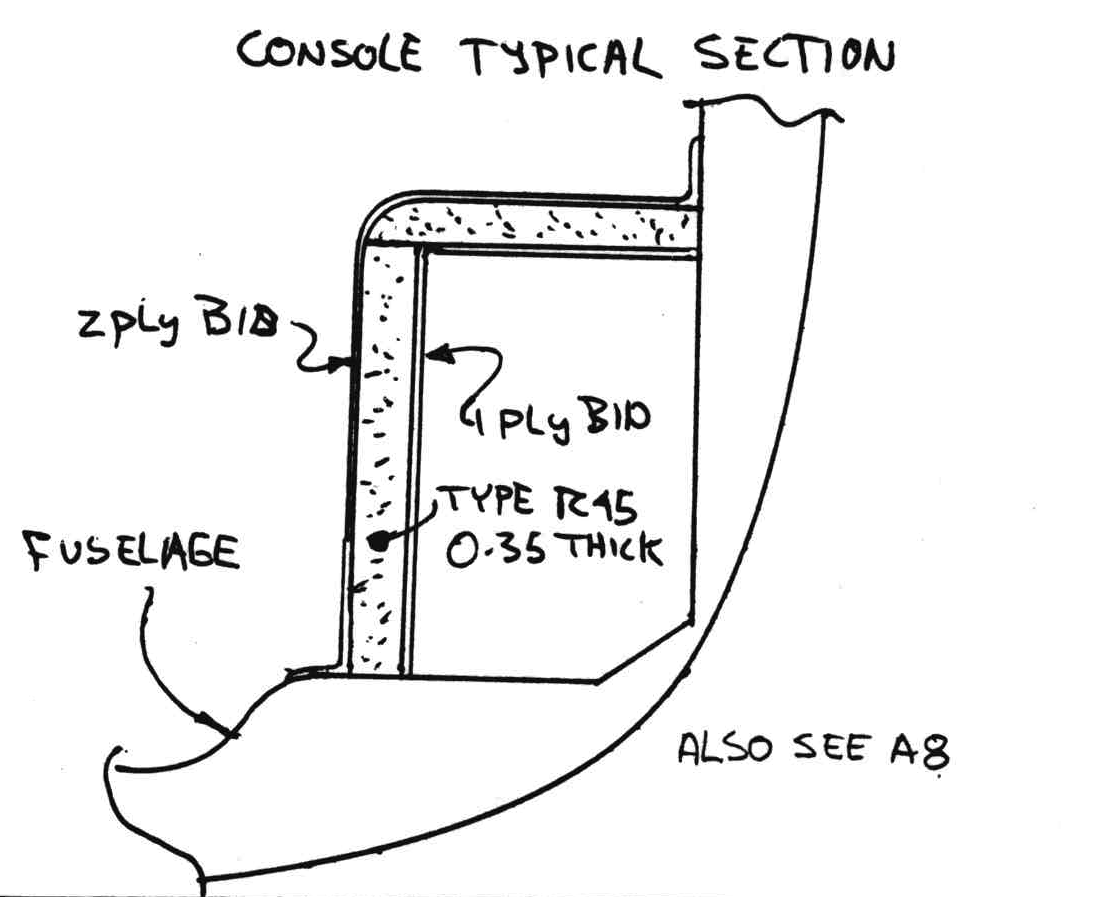 CONSOLE TYPICAL SECTION
2 PLY BID
1 PLY BID
TYPE R45
0.35 THICK
FUSELAGE
ALSO SEE A8